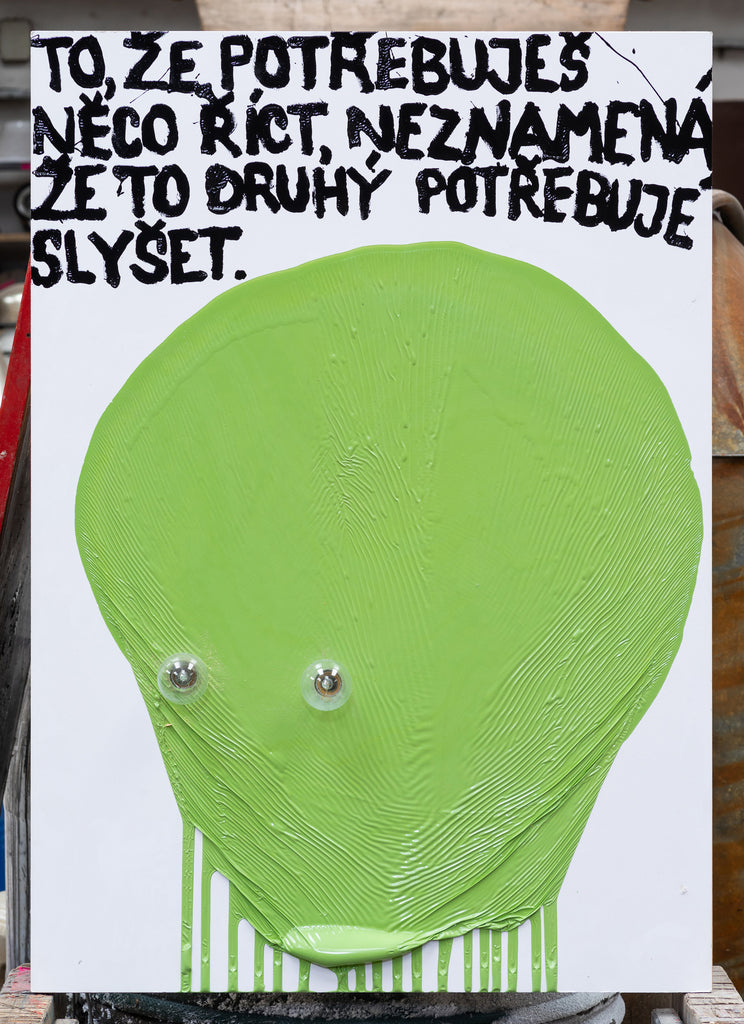 TO, ŽE POTŘEBUJEŠ
NĚCO ŘÍCT, NEZNAMENÁ
ŽE TO DRUHÝ POTŘEBUJE
SLYŠET.